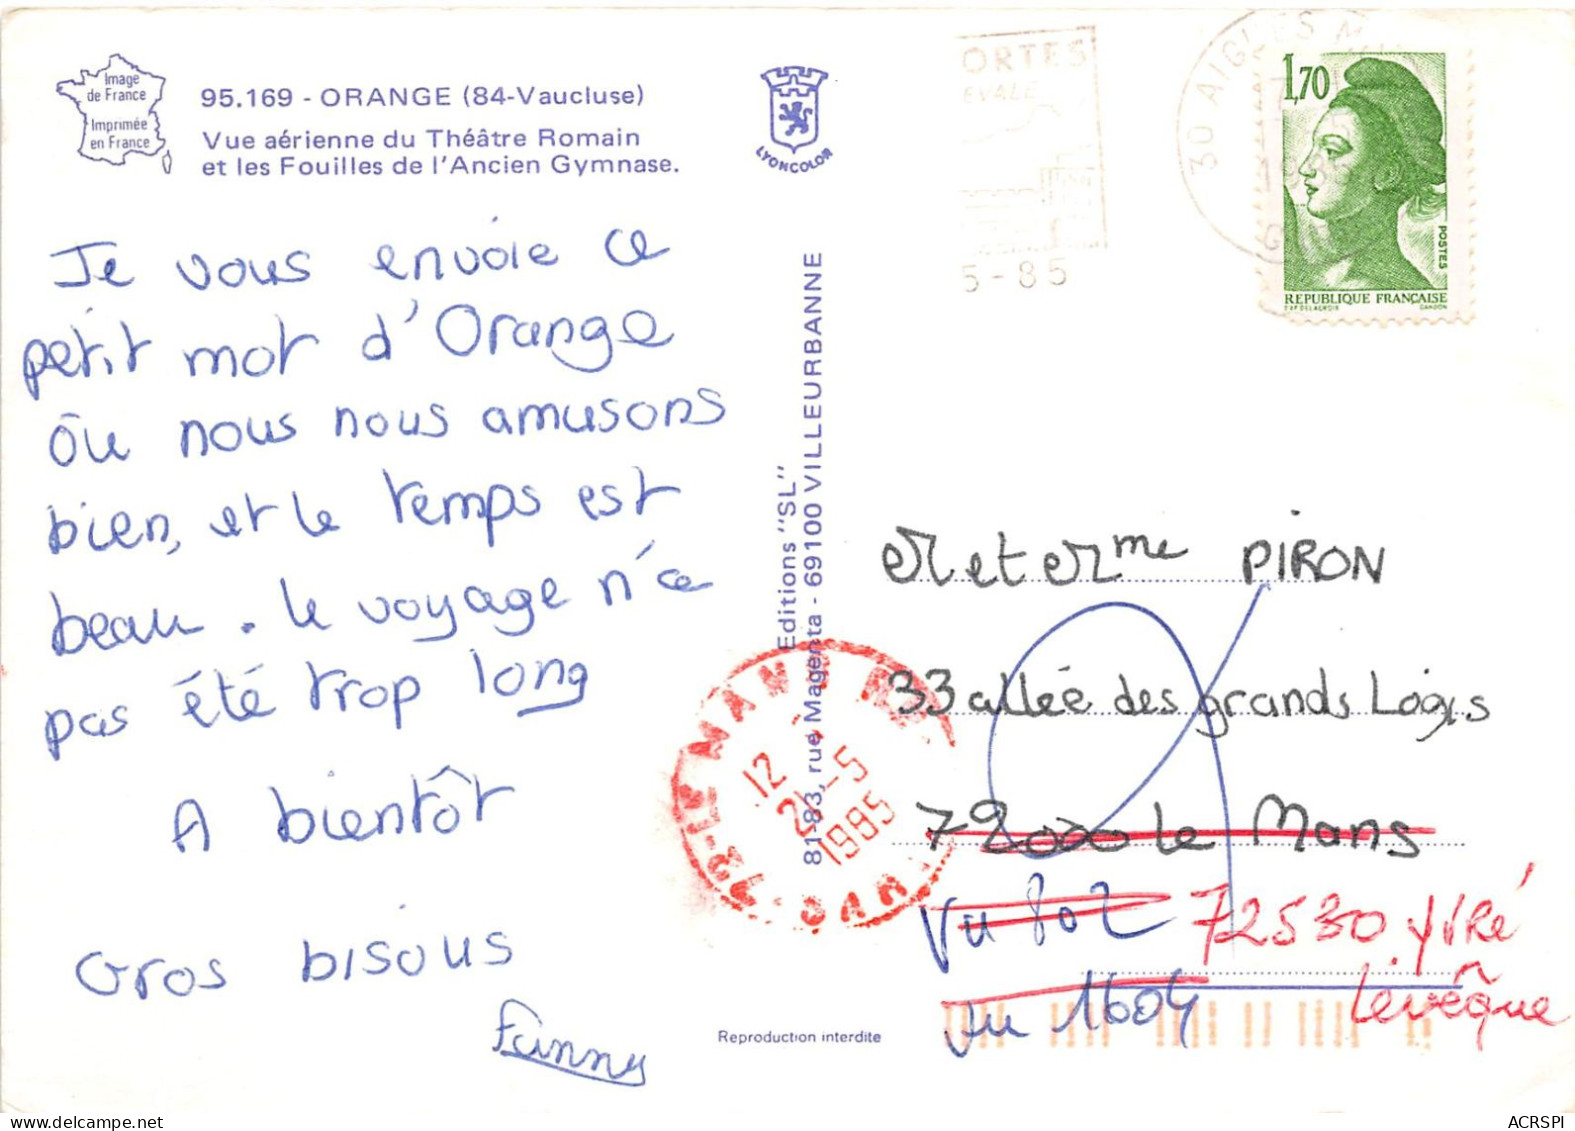 Image
de France
Imprimée
en France
95.169 - ORANGE (84-Vaucluse)
Vue aérienne du Théâtre Romain
et les Fouilles de l'Ancien Gymnase.
LYONCOLOR
ORTES
EVALE
5-85
30 AIGUES M
1,70
POSTES
REPUBLIQUE FRANÇAISE
GANDON
Je vous envoie ce
petit mot d'Orange
Où nous nous amusons
bien, et le temps est
beau. Le voyage n'a
pas été trop long
A bientôt
Gros bisous
Fanny
Editions "SL"
81-83, rue Magenta - 69100 VILLEURBANNE
Reproduction interdite
72-LE MANS
12
21-5
1985
SAR
Mr et Mme PIRON
33 allée des grands Logis
72000 le Mans
Vu 72530 YVRÉ
au 1604 Levêque
ACRSPI